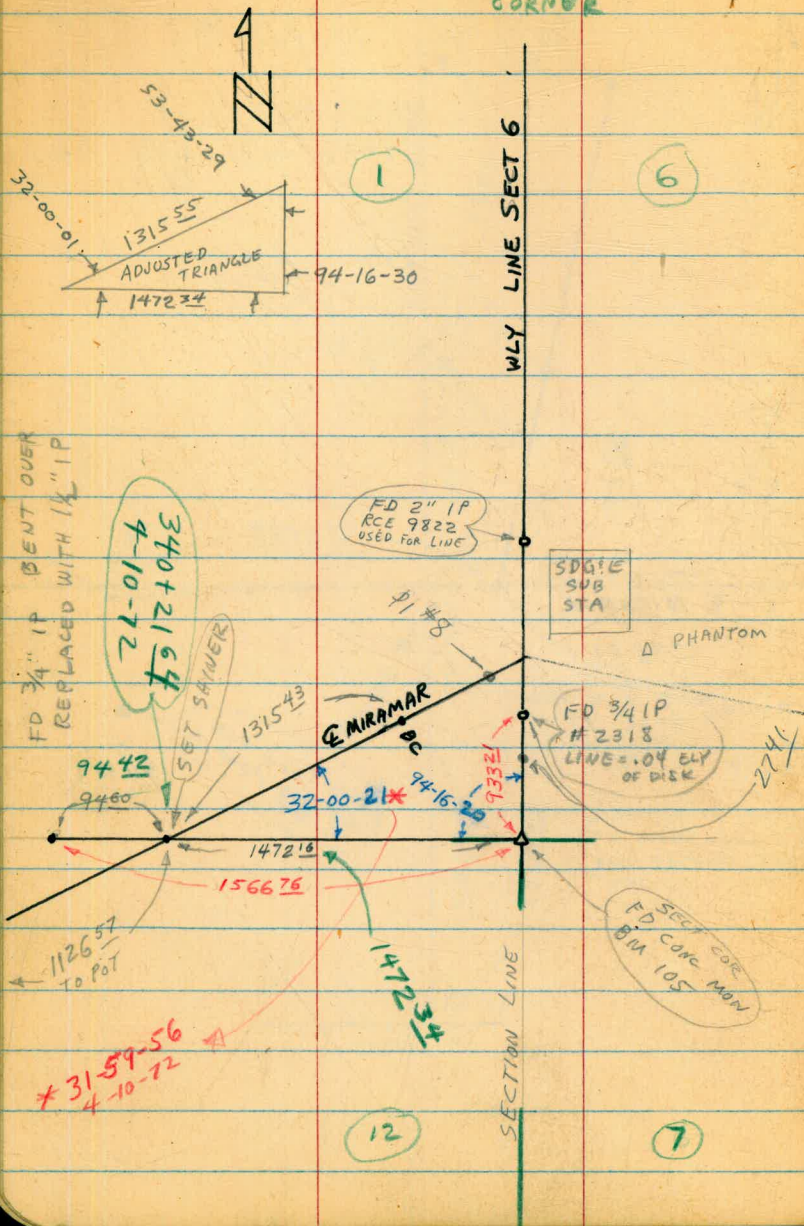 CORNER
53-43-29
32-00-01
1315 55
ADJUSTED
TRIANGLE
94-16-30
1472 34
1
6
WLY LINE SECT 6
FD 3/4" IP BENT OVER
REPLACED WITH 1½" IP
340+21 64
4-10-72
SET SHINER
FD 2" IP
RCE 9822
USED FOR LINE
SDG&E
SUB
STA
PHANTOM
#8
1315 43
℄ MIRAMAR
BC
FD 3/4 IP
# 2318
LINE = .04 ELY
OF DISK
2741
94 42
94 60
32-00-21*
94-16-20
933 21
1472 16
1566 76
1126 57
TO POT
1472 34
SECT COR
FD CONC MON
BM 105
* 31-59-56
4-10-72
SECTION LINE
12
7